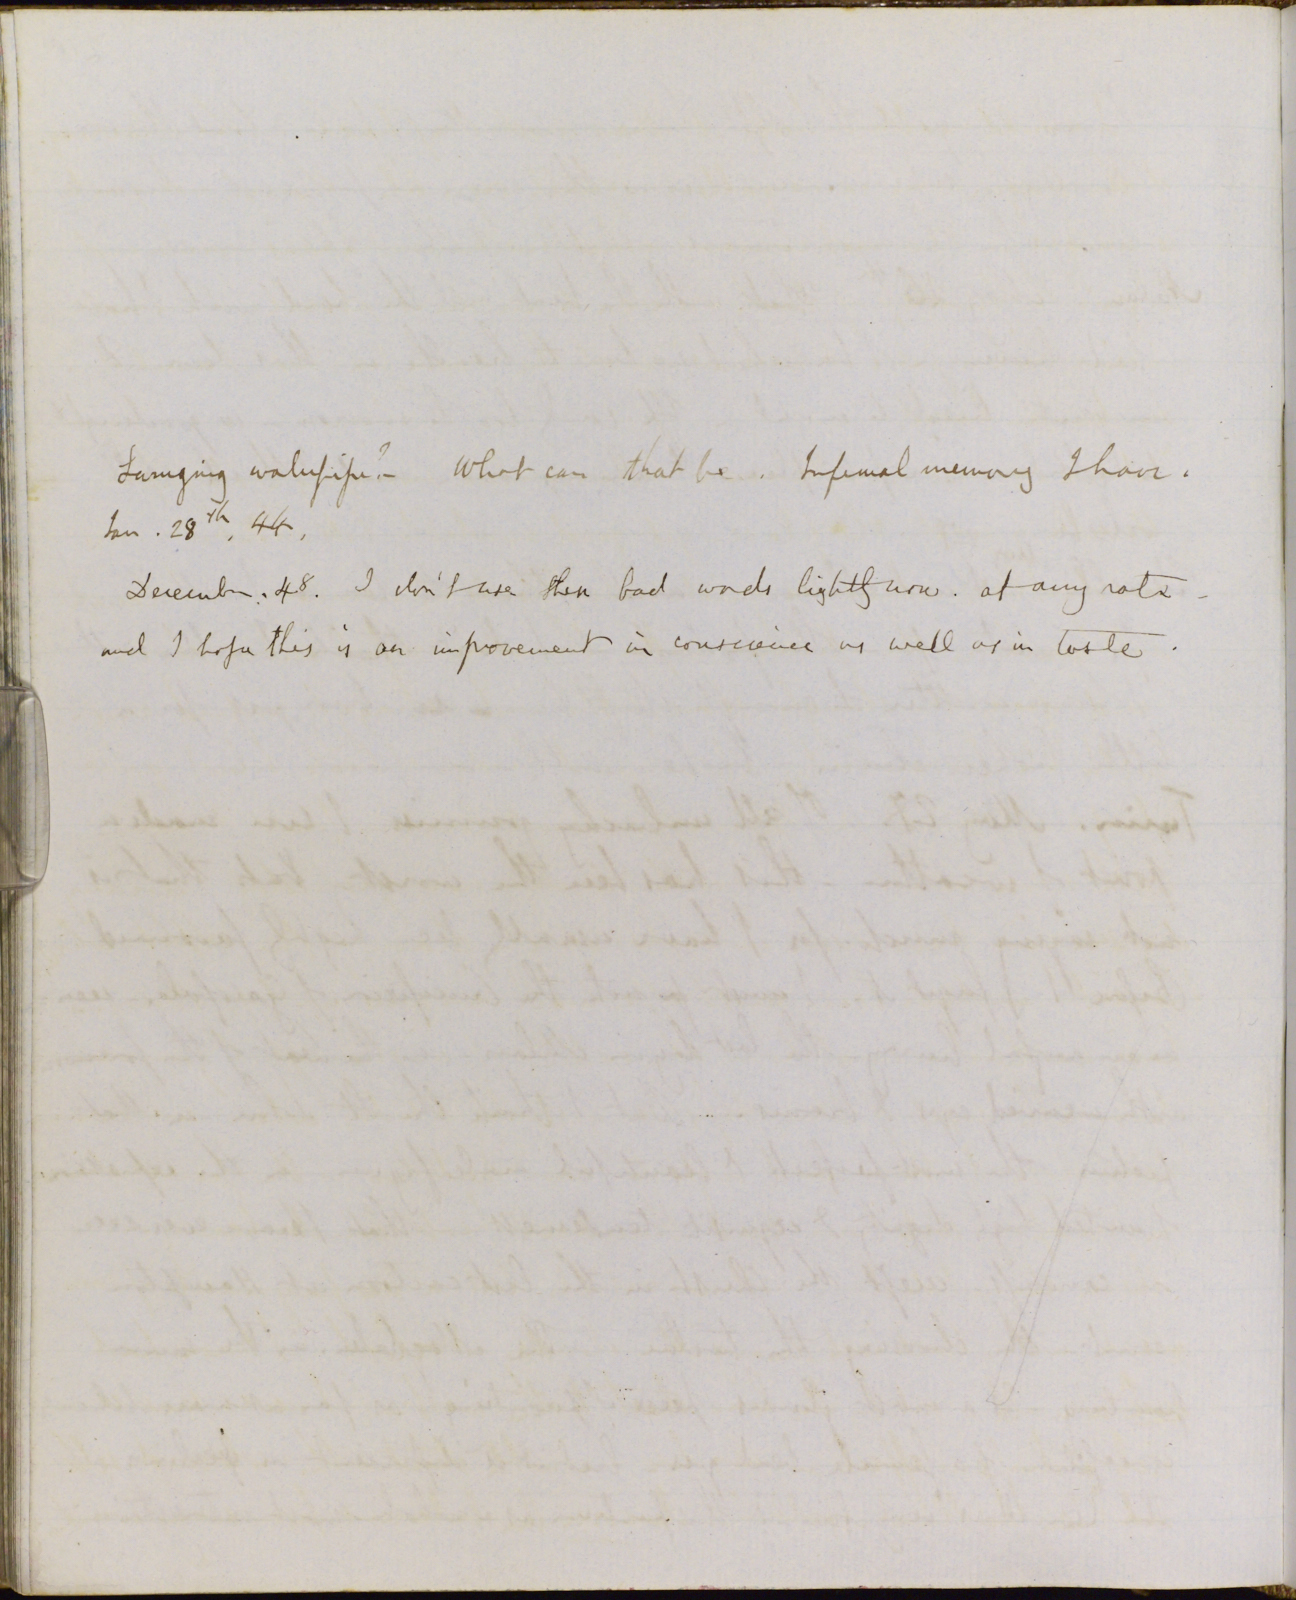 What can that be. Infernal memory I have.
Jan. 28th, 44,
December. 48. I don't use then bad words lightly now. at any rate -
and I hope this is an improvement in conscience as well as in taste.